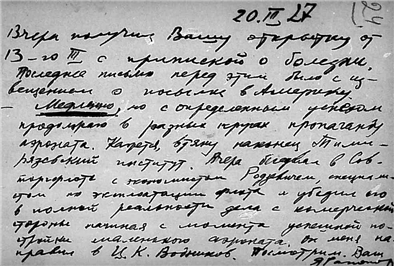 20.III 27
Вчера получил Вашу открытку от
13-го III с припиской о болезни.
Последнее письмо перед этим было с из-
вещением о посылке в Америку
— Медленно, но с определенным успехом
продолжаю в разных кругах пропаганду
аэроната. Кажется, втяну наконец Тими-
рязевский институт. Вчера беседовал в Сов-
с экономистом специали-
стом по эксплоатации флота и убедил его
в полной реальности дела с коммерческой
стороны начиная с момента успешной по-
стройки маленького аэроната. Он меня на-
правил в Ц.К. Водников. Посмотрим. Ваш